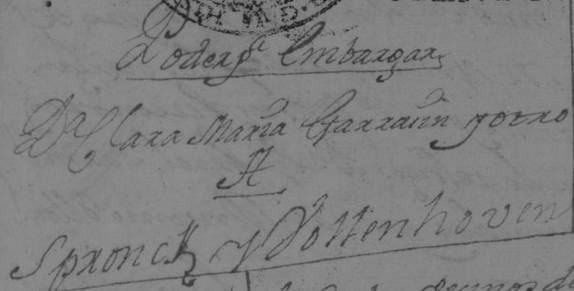 Poder pª Embargar
Dª Clara Maria Garraun y otro
A
Spronck y Dottenhoven